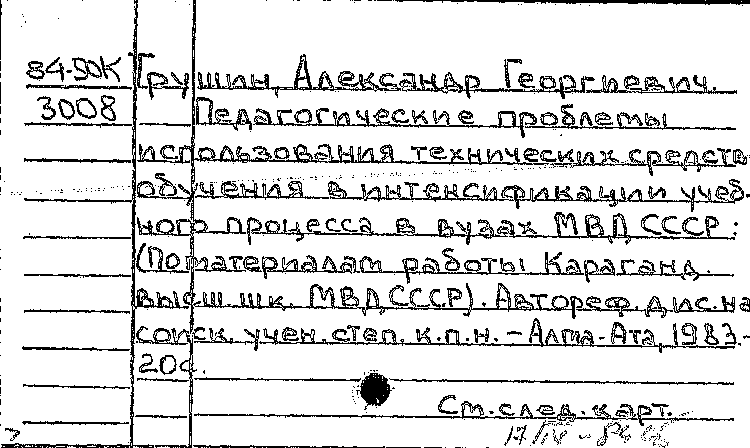 84-50К Грушин, Александр Георгиевич.
3008 Педагогические проблемы
использования технических средств
обучения в интенсификации учеб-
ного процесса в вузах МВД СССР:
(По материалам работы Караганд.
высш. шк. МВД СССР). Автореф. дис. на
соиск. учен. степ. к.п.н. – Алма-Ата, 1983.-
20с.
См. след. карт.
17/IV - 84